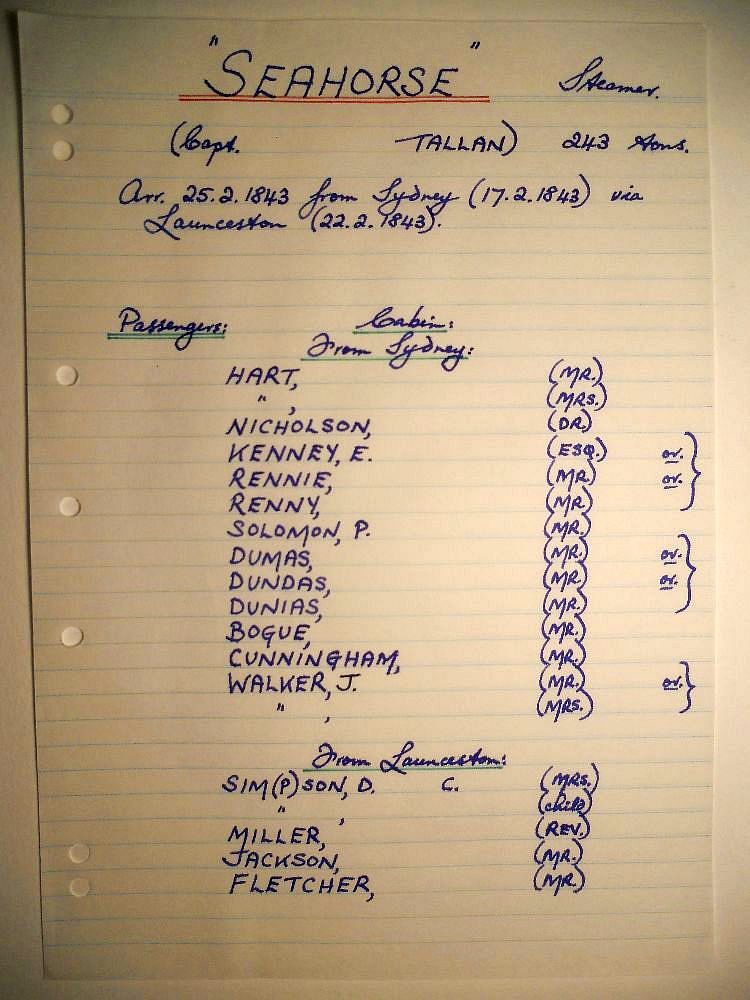 "SEAHORSE" Steamer.
(Capt. TALLAN) 243 tons.
Arr. 25.2.1843 from Sydney (17.2.1843) via
Launceston (22.2.1843).
Passengers: Cabin:
From Sydney:
HART, (MR.)
" , (MRS.)
NICHOLSON, (DR.)
KENNEY, E. (ESQ.) or.
RENNIE, (MR.) or.
RENNY, (MR.)
SOLOMON, P. (MR.)
DUMAS, (MR.) or.
DUNDAS, (MR.) or.
DUNIAS, (MR.)
BOGUE, (MR.)
CUNNINGHAM, (MR.)
WALKER, J. (MR.) or.
" , (MRS.)
From Launceston:
SIM(P)SON, D. C. (MRS.)
" , (child)
MILLER, (REV.)
JACKSON, (MR.)
FLETCHER, (MR.)